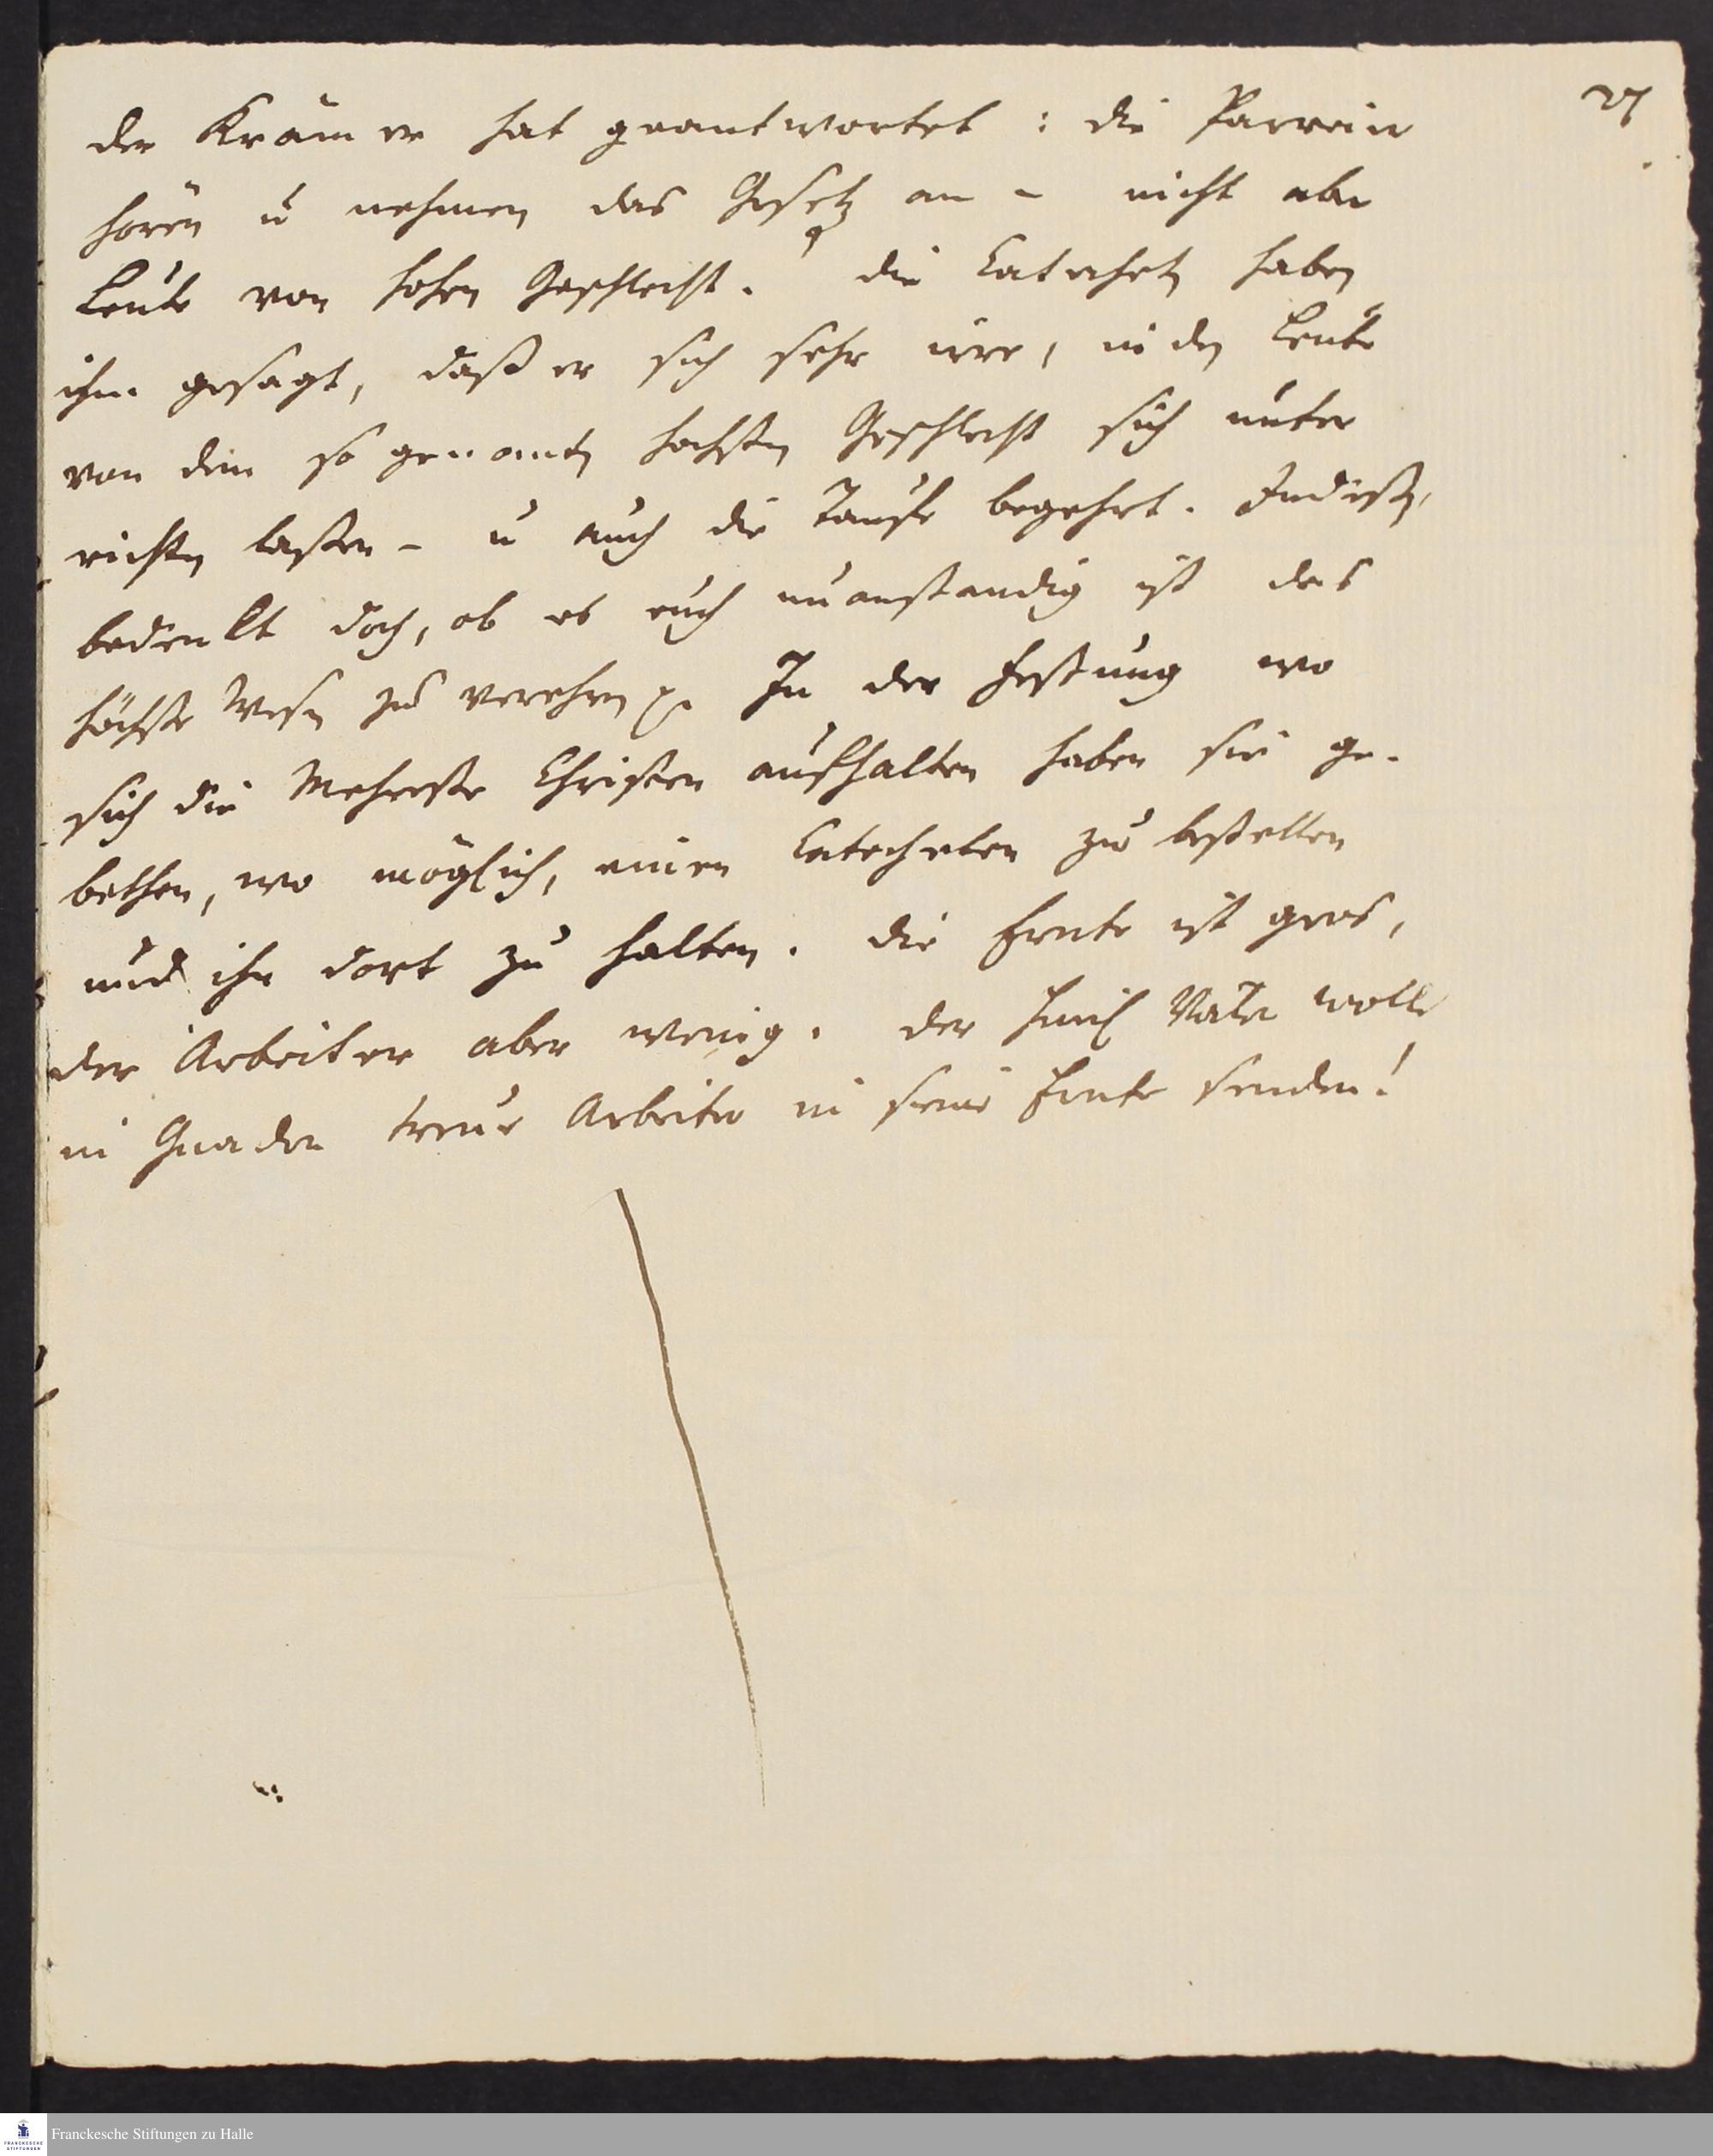 27
der Krämer hat geantwortet: die Parreier
hören u nehmen das Gesetz an – nicht aber
Leute von hohen Geschlecht. Die Catecheten haben
ihm gesagt, daß er sich sehr irre, indem Leute
von dem so genanten hochsten Geschlecht sich unter
richten laßen – u auch die Taufe begehrt. Indeßen,
bedenkt doch, ob es euch unanstandig ist das
höchste Wesen zu verehren p. In der Festung wo
sich die Mehreste Christen aufhalten haben sie ge-
bethen, wo möglich, einen Catecheten zu bestellen
und ihn dort zu halten. Die Ernte ist gros,
der Arbeiter aber wenig. Der Himl Vater wolle
in Gnaden treue Arbeiter in seine Ernte senden!
Franckesche Stiftungen zu Halle
FRANCKESCHE
STIFTUNGEN